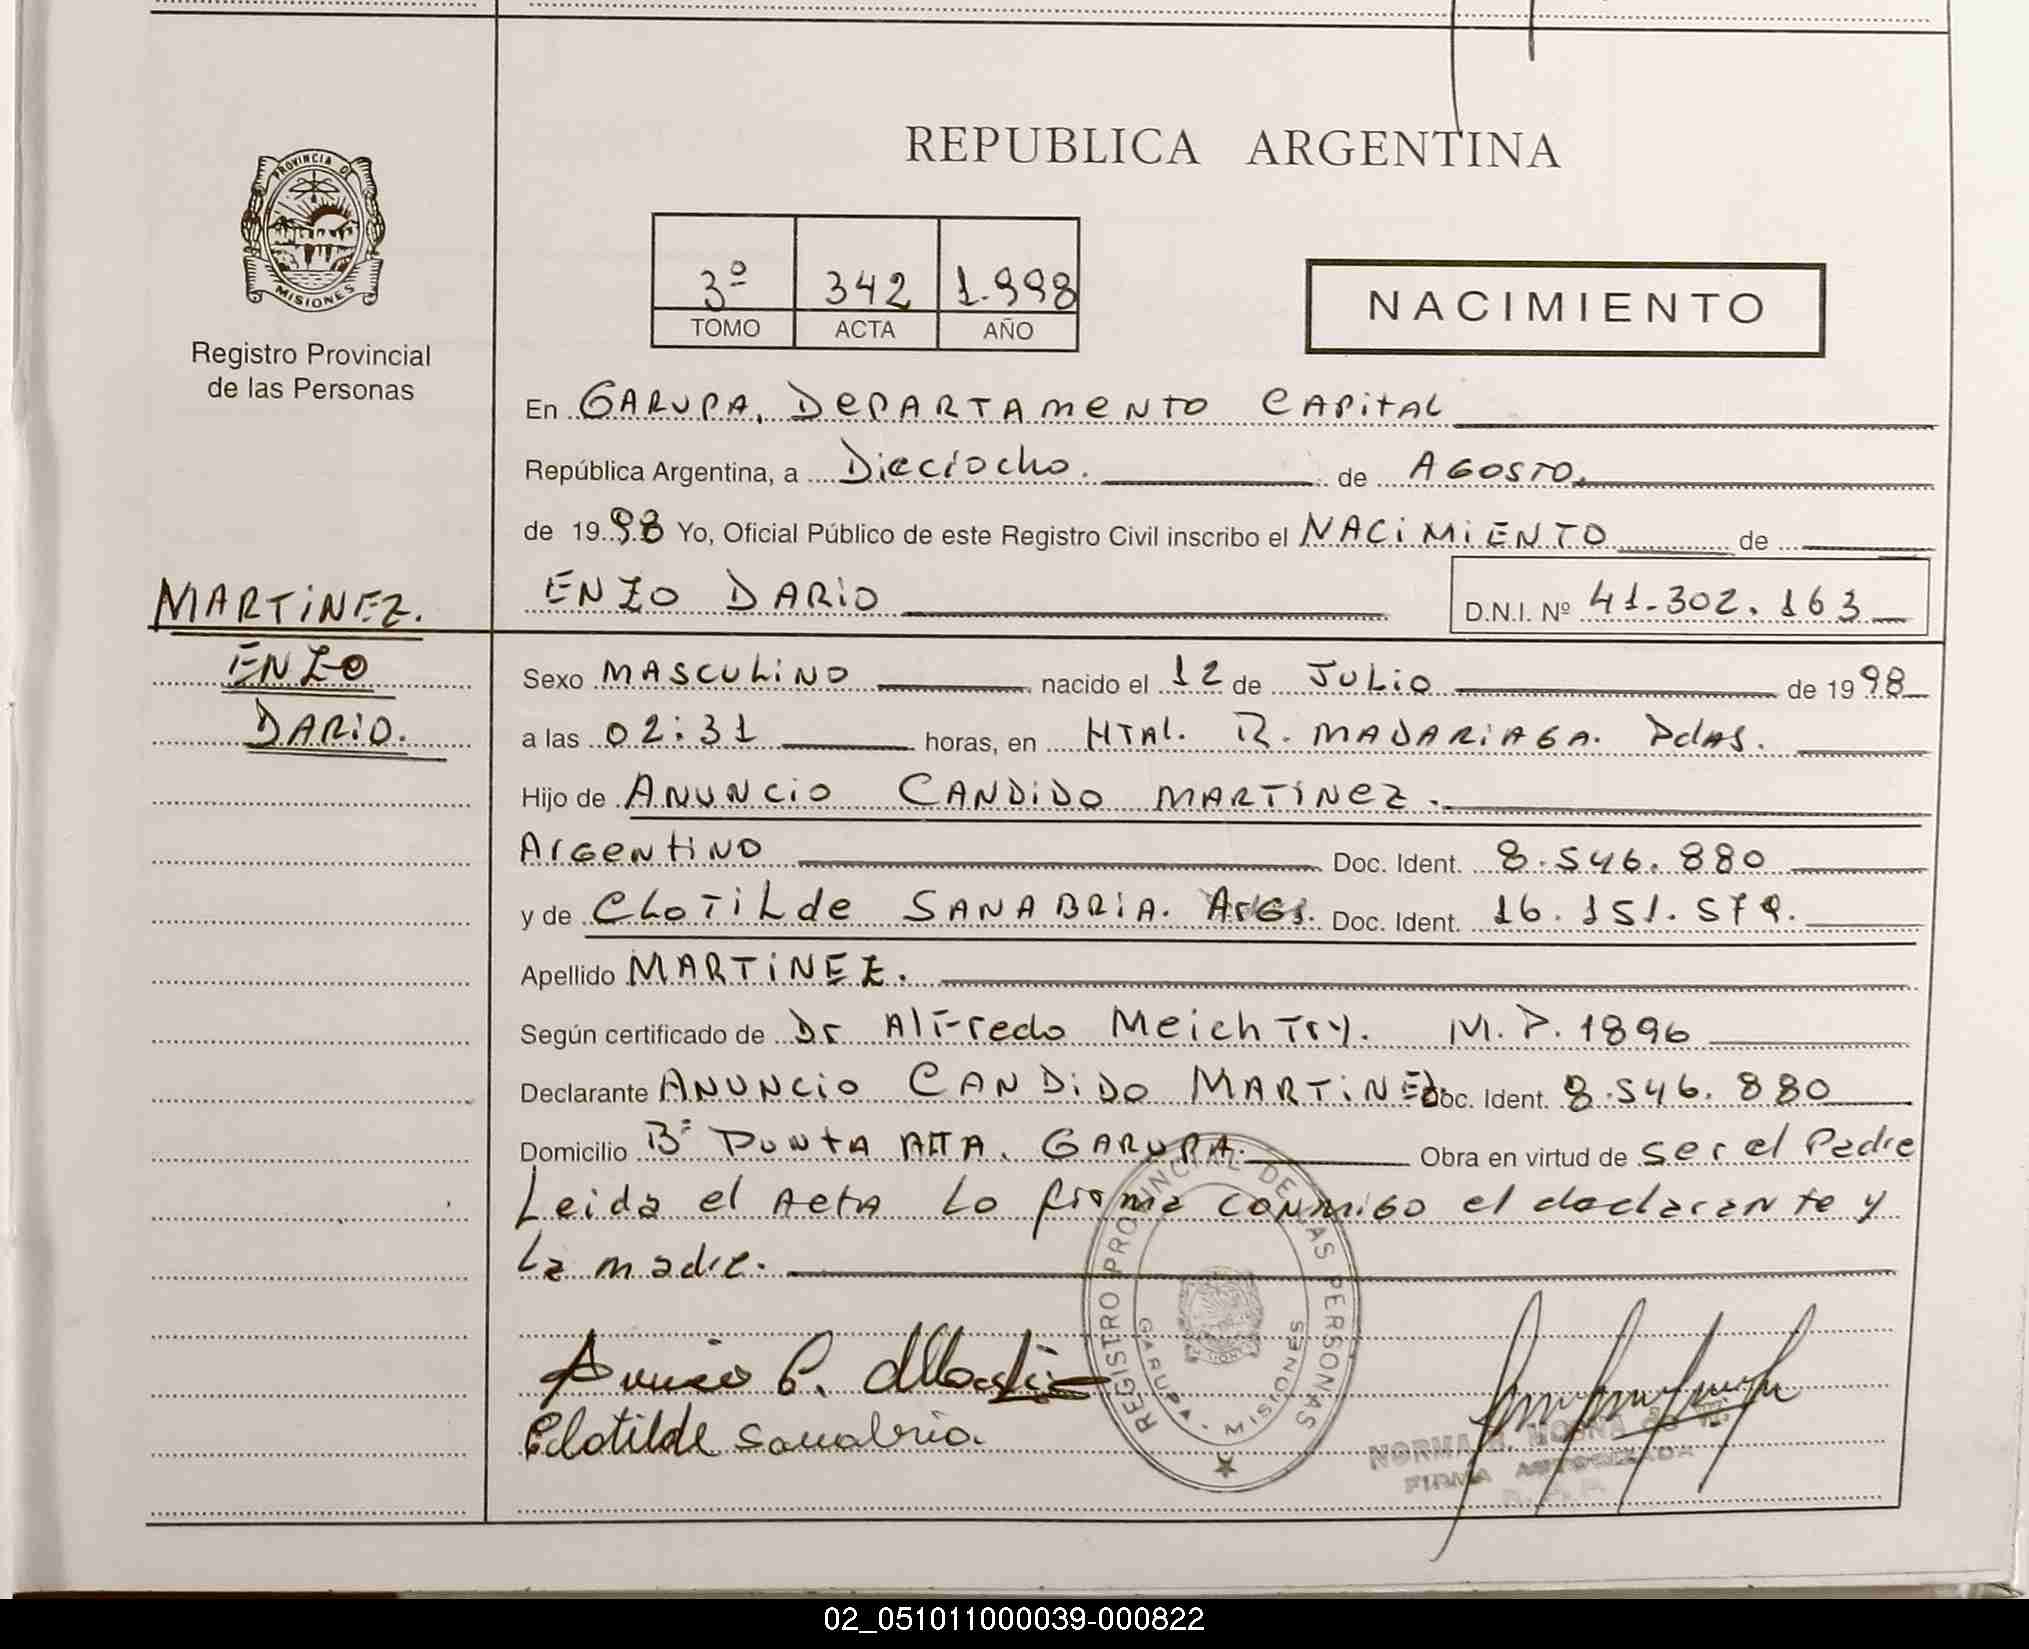 REPUBLICA ARGENTINA
PROVINCIA DE
MISIONES
Registro Provincial
de las Personas
3º 342 1.998
TOMO ACTA AÑO
NACIMIENTO
En GARUPA, DEPARTAMENTO CAPITAL
República Argentina, a Dieciocho. de AGOSTO.
de 19 98 Yo, Oficial Público de este Registro Civil inscribo el NACIMIENTO de
ENZO DARIO D.N.I. Nº 41.302.163
MARTINEZ.
ENZO
DARIO.
Sexo MASCULINO nacido el 12 de JULIO de 19 98
a las 02:31 horas, en HTAL. R. MADARIAGA. PdAS.
Hijo de ANUNCIO CANDIDO MARTINEZ.
Argentino Doc. Ident. 8.546.880
y de CLOTILde SANABRIA. Doc. Ident. 16.151.579.
Apellido MARTINEZ.
Según certificado de Dr Alfredo MeichTry. M.P. 1896
Declarante ANUNCIO CANDIDO MARTINEZ Doc. Ident. 8.546.880
Domicilio Bº PUNTA ALTA. GARUPA. Obra en virtud de ser el Padre
Leida el ActA Lo firma conmigo el declarante y
La madre.
REGISTRO PROVINCIAL DE LAS PERSONAS
GARUPA - MISIONES
Anuncio C. Martinez
Clotilde Sanabria.
NORMA
FIRMA AUTORIZADA
02_051011000039-000822